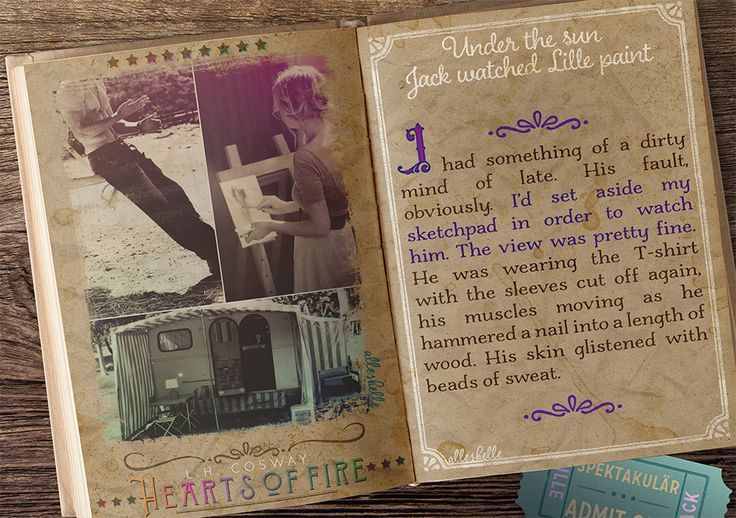 L.H. COSWAY
HEARTS OF FIRE
alleshelle
Under the sun
Jack watched Lille paint
I had something of a dirty
mind of late. His fault,
obviously. I'd set aside my
sketchpad in order to watch
him. The view was pretty fine.
He was wearing the T-shirt
with the sleeves cut off again,
his muscles moving as he
hammered a nail into a length of
wood. His skin glistened with
beads of sweat.
alleshelle
SPEKTAKULÄR
ADMIT